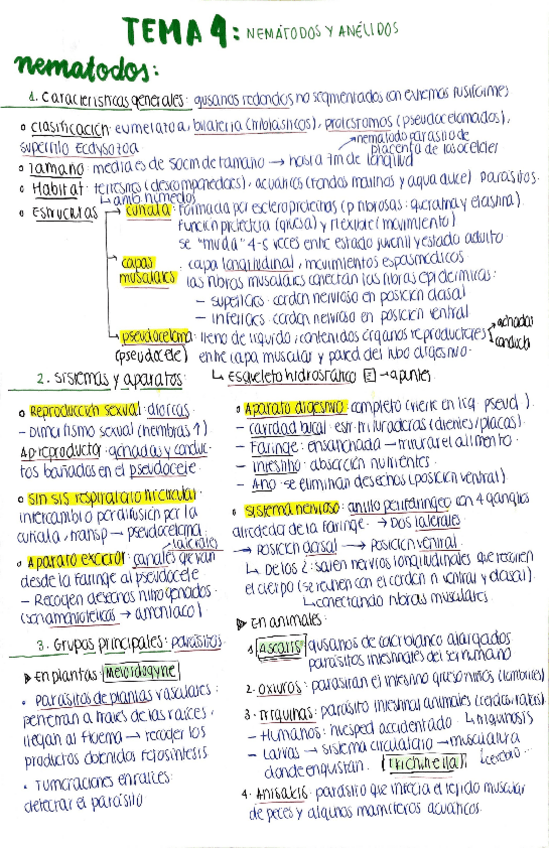 TEMA 4: NEMÁTODOS Y ANÉLIDOS
nematodos:
1. Características generales: gusanos redondos no segmentados con extremos fusiformes
Clasificación: eumetazoa, bilateria (triblásticos), protostomos (pseudocelomados),
superfilo Ecdysozoa
nematodo parásito de
placenta de
Tamaño: media es de 50cm de tamaño → hasta 7m de longitud
Hábitat: terrestres (descomponedores), acuáticos (fondos marinos y agua dulce) parásitos.
↳ amb húmedos
Estructuras
cutícula: formada por escleroproteínas (p fibrosas: queratina y elastina)
Función protectora (gruesa) y flexible (movimiento)
se "muda" 4-5 veces entre estado juvenil y estado adulto
capas musculares: capa longitudinal, movimientos espasmódicos
las fibras musculares conectan las fibras epidérmicas:
- superiores: cordón nervioso en posición dorsal
- inferiores: cordón nervioso en posición ventral
pseudoceloma: lleno de líquido, contenidos órganos reproductores
gónadas
conducto
(pseudocele) entre capa muscular y pared del tubo digestivo.
↳ Esqueleto hidrostático E → apuntes
2. Sistemas y aparatos:
Reproducción sexual: dioicas
- Dimorfismo sexual (hembras ↑)
Ap. reproductor: gónadas y conduc-
tos bañados en el pseudocele
Sin sis respiratorio ni circular
intercambio por difusión por la
cutícula, transp → pseudoceloma.
laterales
Aparato excretor: canales que van
desde la faringe al pseudocele
- Recogen desechos nitrogenados
(son amoniotélicos → amoniaco)
3. Grupos principales: parásitos
En plantas: Meloidogyne
• Parásitos de plantas vasculares:
penetran a través de las raíces,
llegan al floema → recoger los
productos obtenidos fotosíntesis
• Tumoraciones en raíces:
detectar el parásito
Aparato digestivo: completo (vierte en líq. pseud).
- Cavidad bucal: estr trituradoras (dientes/placas).
- Faringe: ensanchada → triturar el alimento.
- Intestino: absorción nutrientes.
- Ano: se eliminan desechos (posición ventral)
Sistema nervioso: anillo perifaríngeo con 4 ganglios
alrededor de la faringe. → Dos laterales
→ Posición dorsal → Posición ventral
↳ De los 2: salen nervios longitudinales que recorren
el cuerpo (se reúnen con el cordón n ventral y dorsal).
↳ conectando fibras musculares.
En animales:
1. Ascaris: gusanos de color blanco alargados
parásitos intestinales del ser humano
2. Oxiuros: parasitan el intestino grueso niños (lombrices)
3. Triquinas: parásito intestinal animales (cerdos, ratas)
- Humanos: huésped accidentado ↳ triquinosis
- Larvas → sistema circulatorio → musculatura
donde enquistan. (Trichinella) ↳ cerebro...
4. Anisakis: parásito que infecta el tejido muscular
de peces y algunos mamíferos acuáticos.